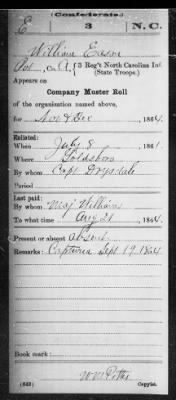 Confederate.
E 3 N.C.
William Eason
Pvt, Co. A, 3 Reg't North Carolina Inf
(State Troops.)
Appears on
Company Muster Roll
of the organization named above,
for Nov & Dec, 1864
Enlisted:
When July 8, 1861
Where Goldsboro
By whom Capt Drysdale
Period
Last paid:
By whom Maj Williams
To what time Aug 31, 1864.
Present or absent absent
Remarks: Captured Sept 19, 1864
Book mark:
(642) Copyist.